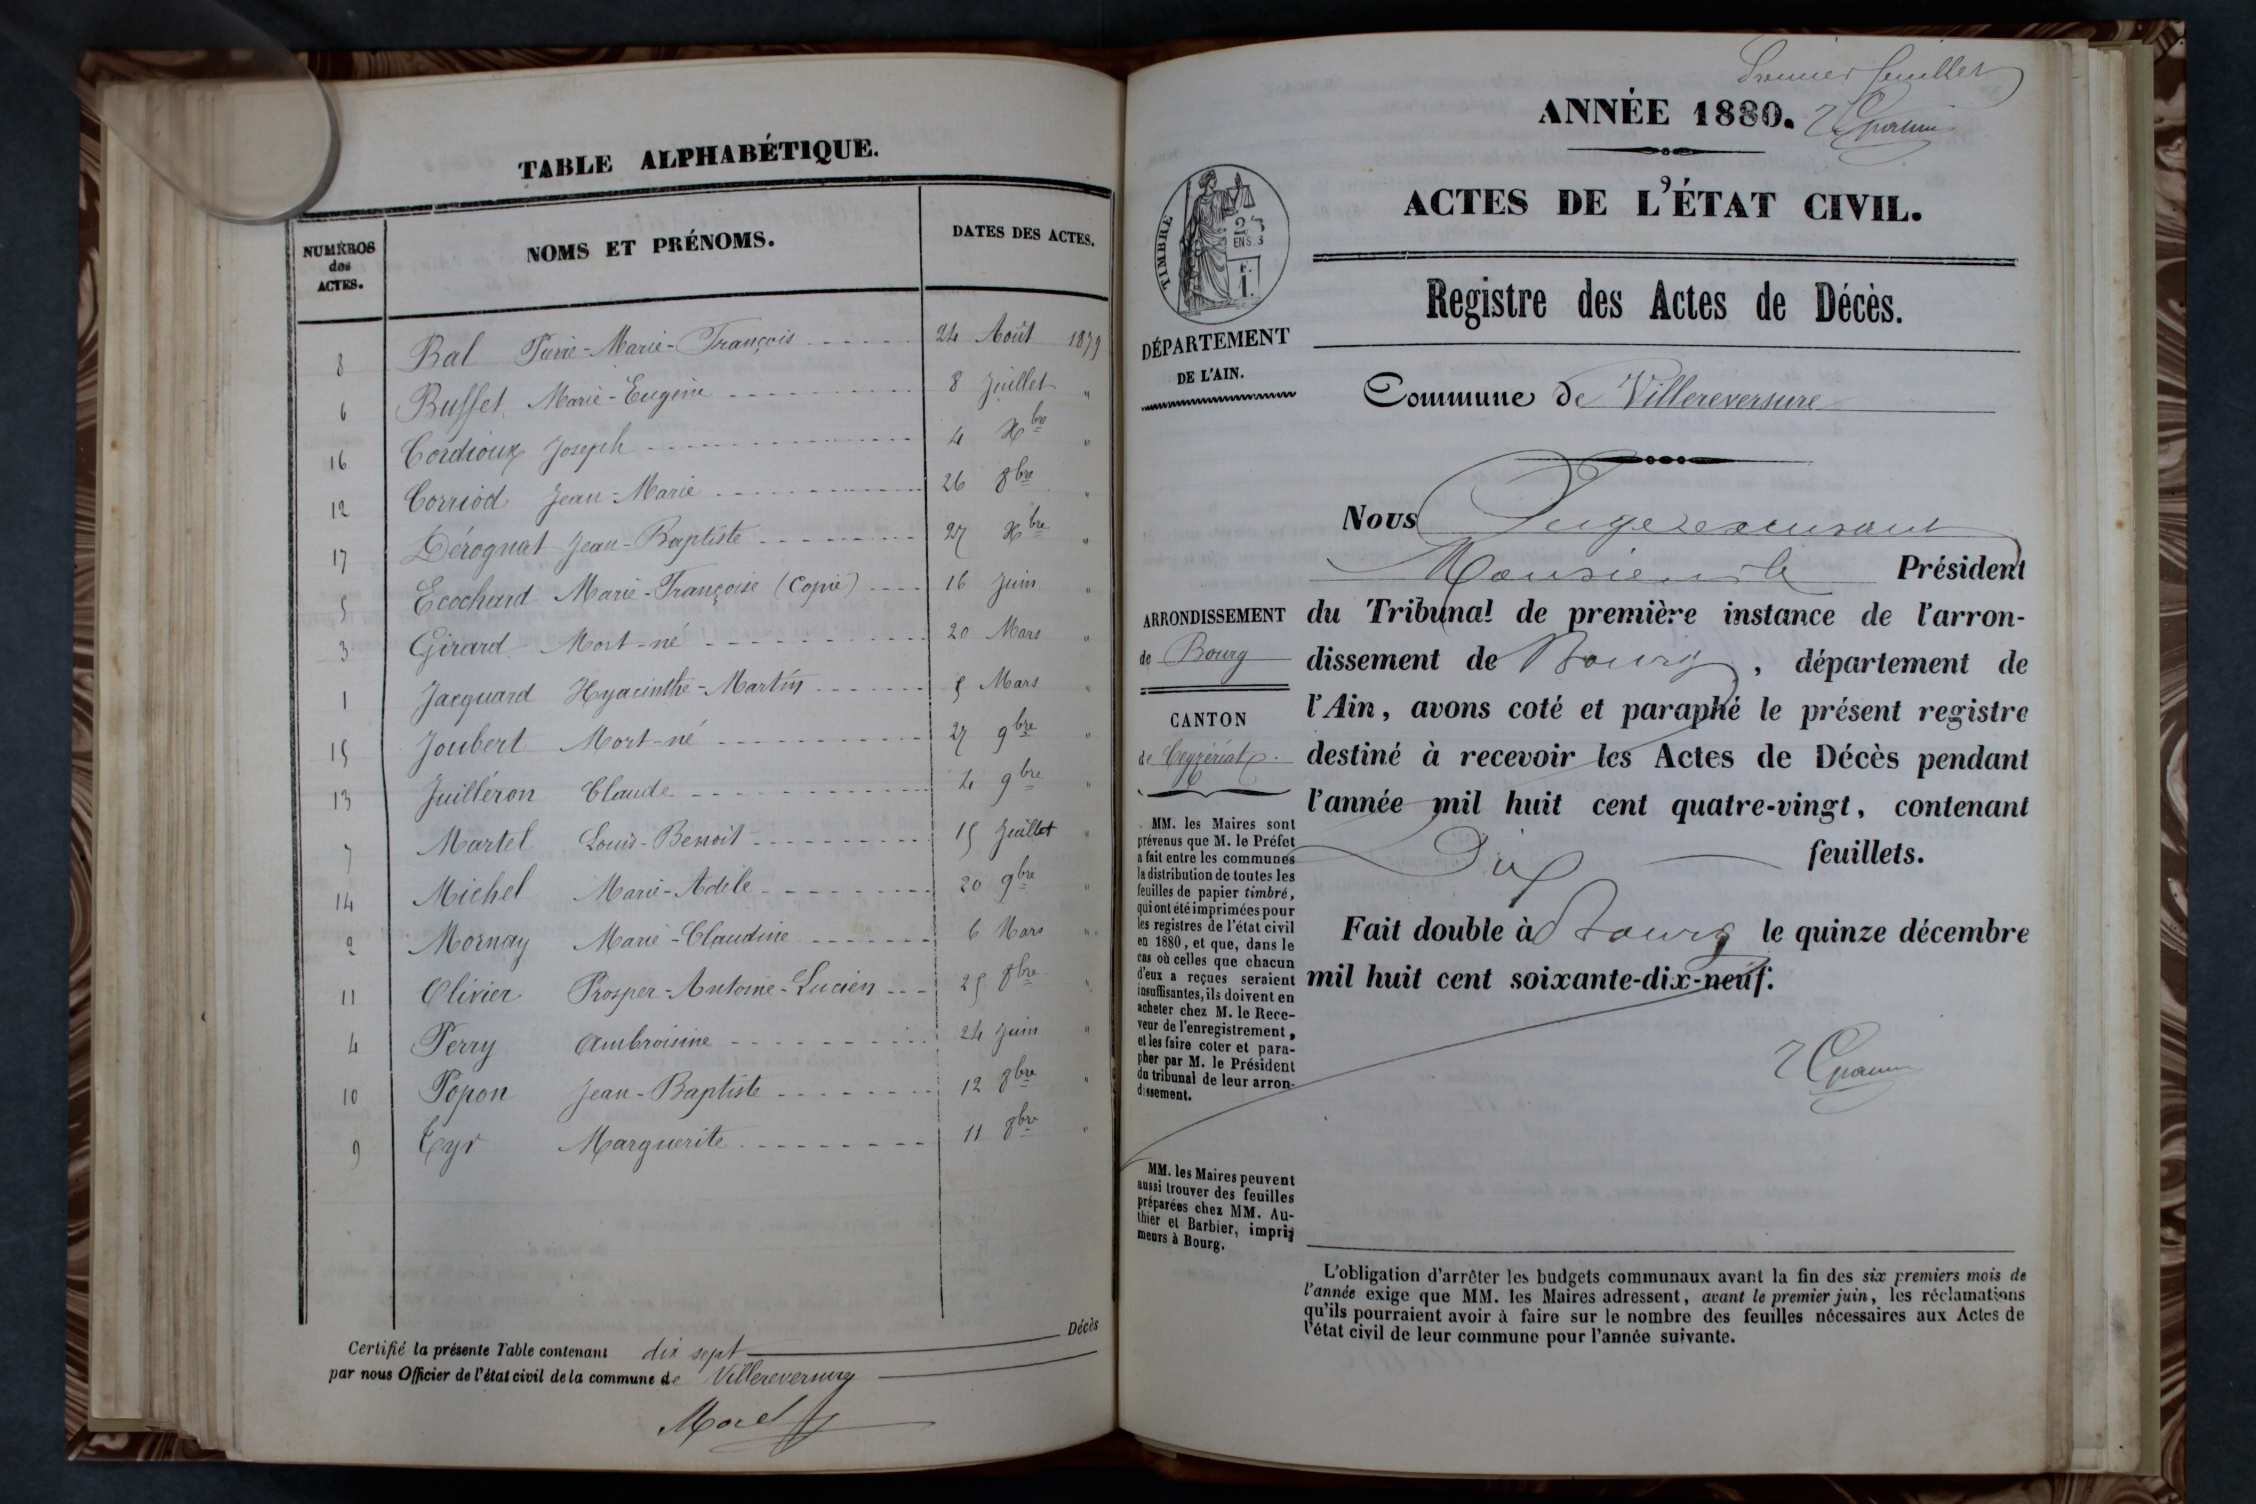 TABLE ALPHABÉTIQUE.
NUMÉROS des ACTES. NOMS ET PRÉNOMS. DATES DES ACTES.
8 Bal Pierre-Marie-François 24 Août 1879
6 Buffet Marie-Eugénie 8 Juillet "
16 Cordioux Joseph 4 Xbre "
12 Corriod Jean-Marie 26 8bre "
17 Dérognat Jean-Baptiste 27 Xbre "
5 Ecochard Marie-Françoise (Copie) 16 Juin "
3 Girard Mort-né 20 Mars "
1 Jacquard Hyacinthe-Martin 5 Mars "
15 Joubert Mort-né 27 9bre "
13 Juilléron Claude 4 9bre "
7 Martel Louis-Benoit 15 Juillet "
14 Michel Marie-Adèle 20 9bre "
2 Mornay Marie-Claudine 6 Mars "
11 Olivier Prosper-Antoine-Lucien 25 8bre "
4 Perry Ambroisine 24 Juin "
10 Popon Jean-Baptiste 12 8bre "
9 Cyr Marguerite 11 8bre "
Certifié la présente Table contenant dix sept Décès
par nous Officier de l'état civil de la commune de Villereversure
Morel
Premier feuillet
ANNÉE 1880.
ACTES DE L'ÉTAT CIVIL.
TIMBRE
Registre des Actes de Décès.
DÉPARTEMENT
DE L'AIN.
Commune de Villereversure
Nous Juge remplaçant
Monsieur le Président
du Tribunal de première instance de l'arron-
dissement de Bourg, département de
l'Ain, avons coté et paraphé le présent registre
destiné à recevoir les Actes de Décès pendant
l'année mil huit cent quatre-vingt, contenant
Dix feuillets.
Fait double à Bourg le quinze décembre
mil huit cent soixante-dix-neuf.
ARRONDISSEMENT
de Bourg
CANTON
de Ceyzériat.
MM. les Maires sont
prévenus que M. le Préfet
a fait entre les communes
la distribution de toutes les
feuilles de papier timbré,
qui ont été imprimées pour
les registres de l'état civil
en 1880, et que, dans le
cas où celles que chacun
d'eux a reçues seraient
insuffisantes, ils doivent en
acheter chez M. le Rece-
veur de l'enregistrement,
et les faire coter et para-
pher par M. le Président
du tribunal de leur arron-
dissement.
MM. les Maires peuvent
aussi trouver des feuilles
préparées chez MM. Au-
thier et Barbier, impri-
meurs à Bourg.
L'obligation d'arrêter les budgets communaux avant la fin des six premiers mois de
l'année exige que MM. les Maires adressent, avant le premier juin, les réclamations
qu'ils pourraient avoir à faire sur le nombre des feuilles nécessaires aux Actes de
l'état civil de leur commune pour l'année suivante.